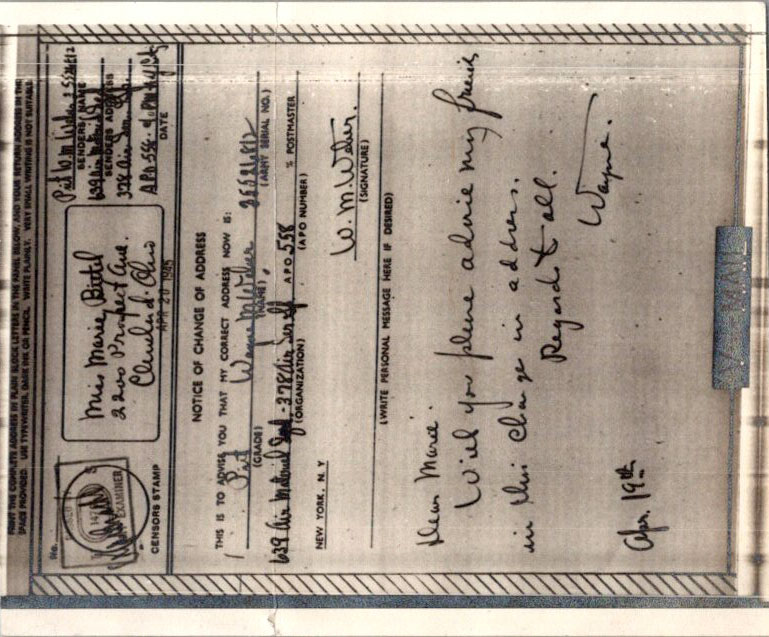 PRINT THE COMPLETE ADDRESS IN PLAIN BLOCK LETTERS IN THE PANEL BELOW, AND YOUR RETURN ADDRESS IN THE
SPACE PROVIDED. USE TYPEWRITER, DARK INK OR PENCIL. WRITE PLAINLY. VERY SMALL WRITING IS NOT SUITABLE.
No.
EXAMINER
CENSORS STAMP
Miss Marie
2200 Prospect Ave.
Cleveland. Ohio
APR 20 1945
Pvt W. M. Weber
SENDERS NAME
639 Air Material
SENDERS ADDRESS
378 Air
APO 558
DATE
NOTICE OF CHANGE OF ADDRESS
THIS IS TO ADVISE YOU THAT MY CORRECT ADDRESS NOW IS:
Pvt Wayne M Weber
(GRADE) (NAME) (ARMY SERIAL NO.)
639 Air Material - 378 Air APO 558 % POSTMASTER
(ORGANIZATION) (APO NUMBER)
NEW YORK, N. Y
W. M. Weber.
(SIGNATURE)
(WRITE PERSONAL MESSAGE HERE IF DESIRED)
Dear Marie:
Will you please advise my friends
in this change in address.
Regards to all.
Wayne.
Apr. 19th
V-MAIL